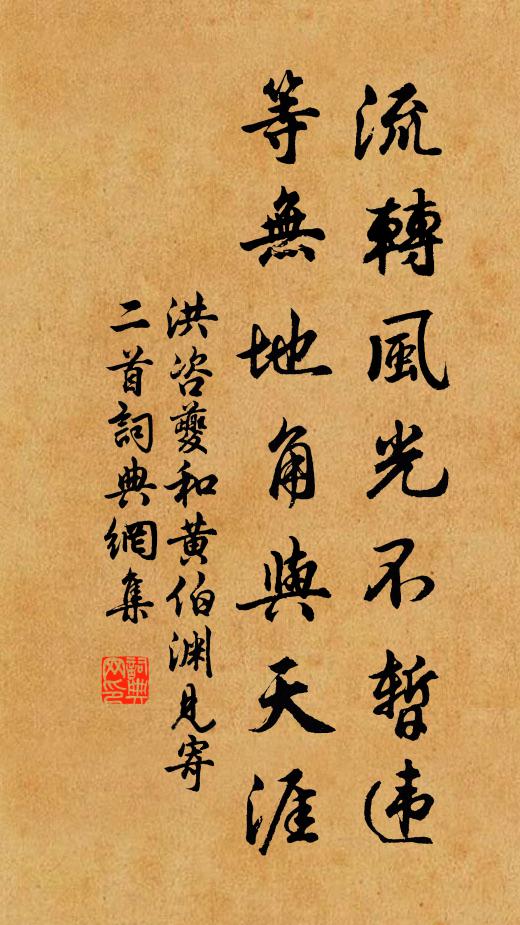 流轉風光不暫違
等無地角與天涯
洪咨夔和黄伯渊見寄
二首詞典網集
詞典
网印